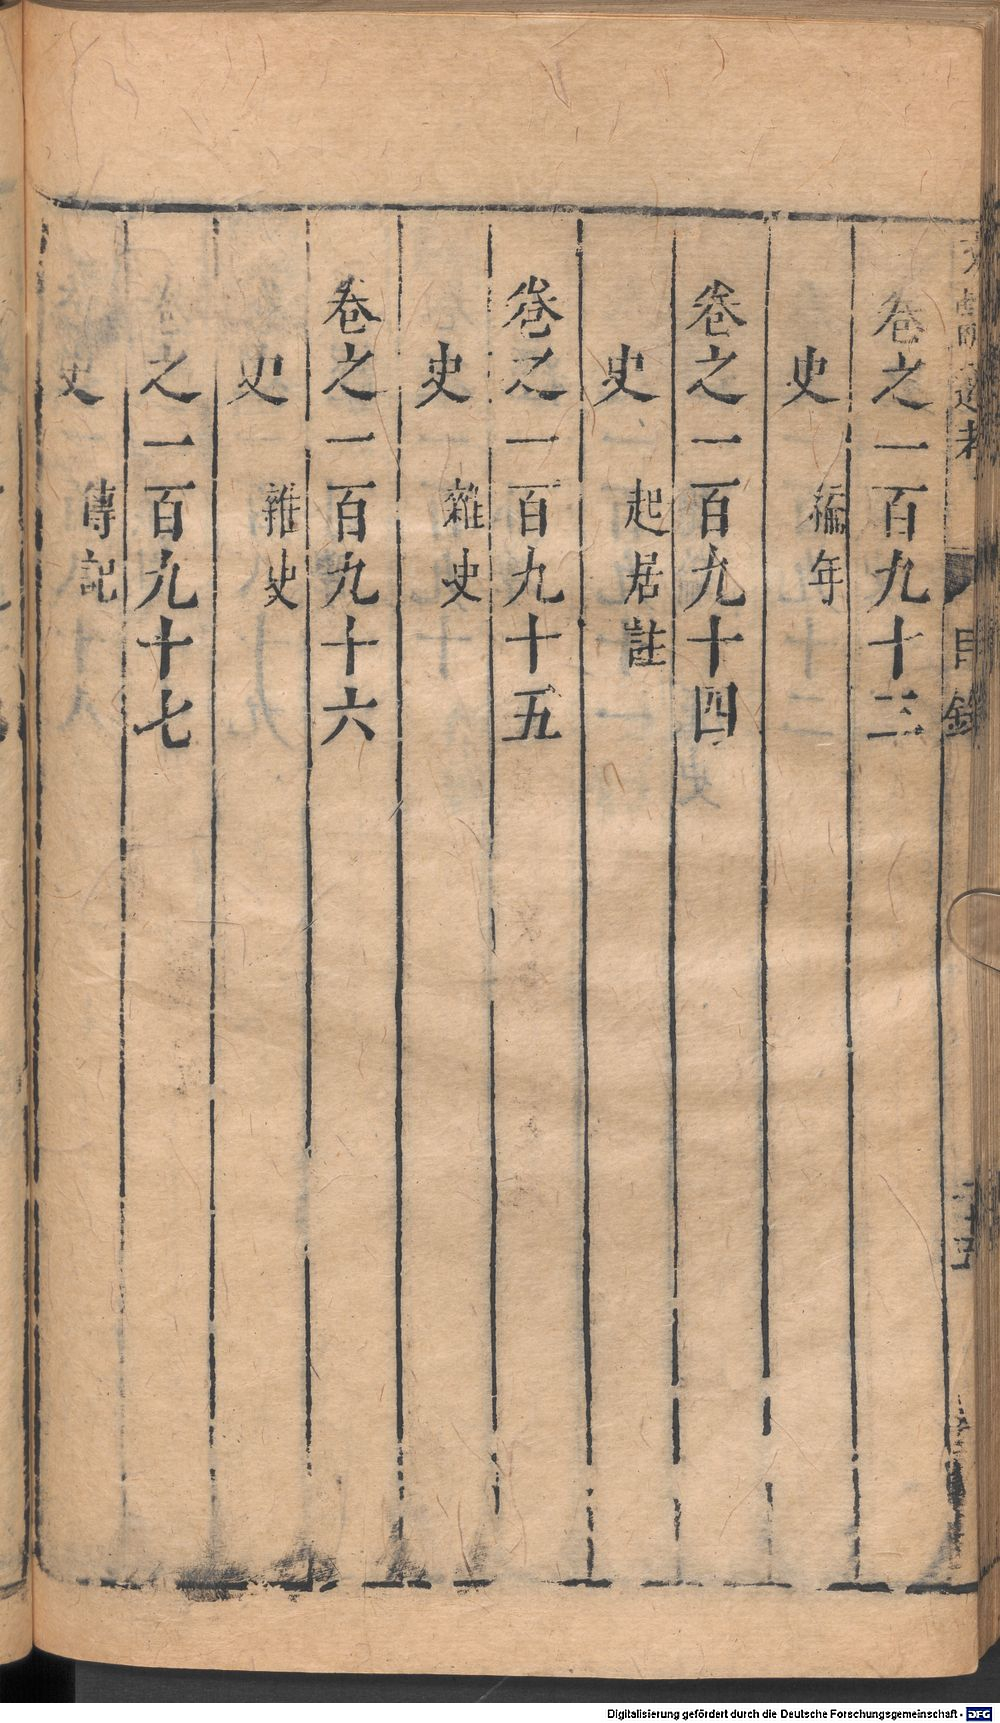 文獻通考 目錄
卷之一百九十三
史 編年
卷之一百九十四
史 起居註
卷之一百九十五
史 雜史
卷之一百九十六
史 雜史
之一百九十七
史 傳記
Digitalisierung gefördert durch die Deutsche Forschungsgemeinschaft - DFG